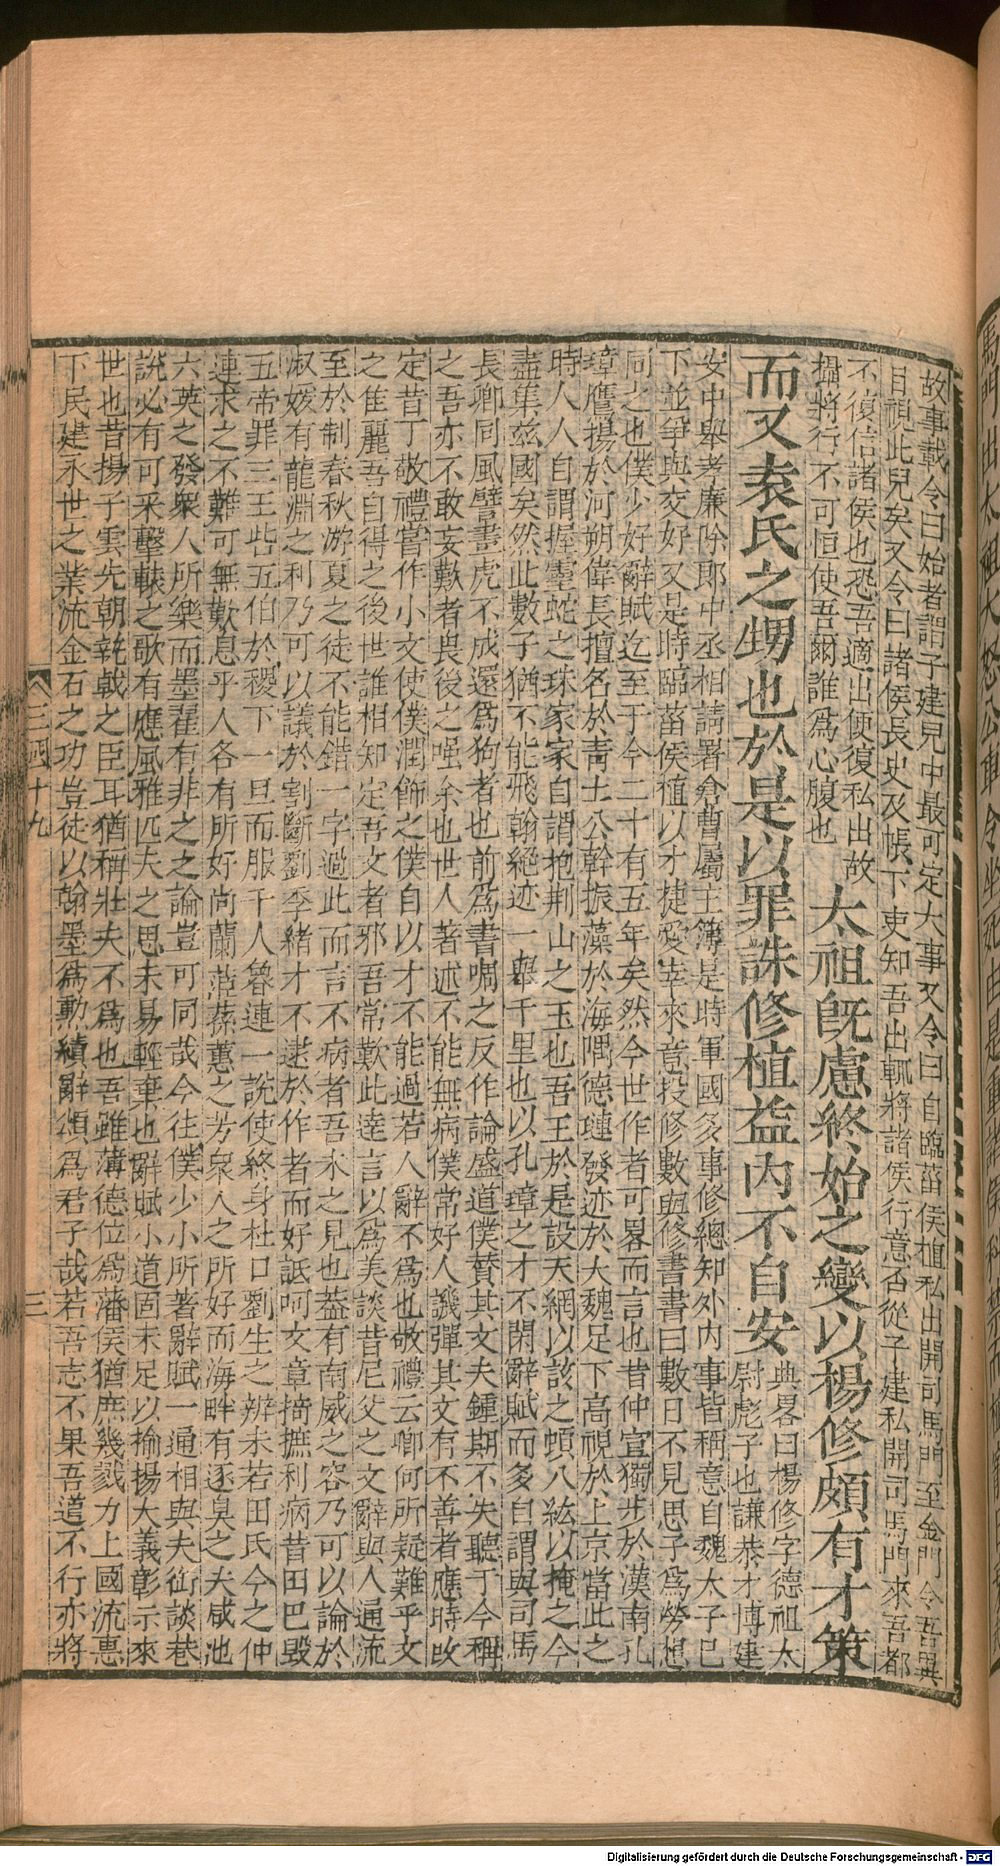 故事載令曰始者謂子建兒中最可定大事又令曰自臨菑侯植私出開司馬門至金門令吾異
目視此兒矣又令曰諸侯長史及帳下吏知吾出輒將諸侯行意否從子建私開司馬門來吾都
不復信諸侯也恐吾適出便復私出故
攝將行不可恒使吾爾誰爲心腹也
太祖旣慮終始之變以楊修頗有才策
而又袁氏之甥也於是以罪誅修植益内不自安
典畧曰楊修字德祖太
尉彪子也謙恭才博建
安中舉孝廉除郎中丞相請署倉曹屬主簿是時軍國多事修總知外内事皆稱意自魏太子已
下並爭與交好又是時臨菑侯植以才捷愛幸來意投修數與修書書曰數日不見思子爲勞想
同之也僕少好辭賦迄至于今二十有五年矣然今世作者可畧而言也昔仲宣獨步於漢南孔
璋鷹揚於河朔偉長擅名於靑土公幹振藻於海隅德璉發迹於大魏足下高視於上京當此之
時人人自謂握靈蛇之珠家家自謂抱荆山之玉也吾王於是設天網以該之頓八紘以掩之今
盡集兹國矣然此數子猶不能飛翰絕迹一舉千里也以孔璋之才不閑辭賦而多自謂與司馬
長卿同風譬畫虎不成還爲狗者也前爲書啁之反作論盛道僕贊其文夫鍾期不失聽于今稱
之吾亦不敢妄歎者畏後之嗤余也世人著述不能無病僕常好人譏彈其文有不善者應時改
定昔丁敬禮嘗作小文使僕潤飾之僕自以才不能過若人辭不爲也敬禮云卿何所疑難乎文
之佳麗吾自得之後世誰相知定吾文者邪吾常歎此達言以爲美談昔尼父之文辭與人通流
至於制春秋游夏之徒不能錯一字過此而言不病者吾未之見也蓋有南威之容乃可以論於
淑媛有龍淵之利乃可以議於割斷劉季緒才不逮於作者而好詆呵文章掎摭利病昔田巴毀
五帝罪三王呰五伯於稷下一旦而服千人魯連一說使終身杜口劉生之辨未若田氏今之仲
連求之不難可無歎息乎人各有所好尚蘭茝蓀蕙之芳衆人之所好而海畔有逐臭之夫咸池
六英之發衆人所樂而墨翟有非之之論豈可同哉今往僕少小所著辭賦一通相與夫街談巷
說必有可采擊轅之歌有應風雅匹夫之思未易輕棄也辭賦小道固未足以揄揚大義彰示來
世也昔揚子雲先朝執戟之臣耳猶稱壯夫不爲也吾雖薄德位爲藩侯猶庶幾戮力上國流惠
下民建永世之業流金石之功豈徒以翰墨爲勳績辭頌爲君子哉若吾志不果吾道不行亦將
三四十九
三
Digitalisierung gefördert durch die Deutsche Forschungsgemeinschaft - DFG